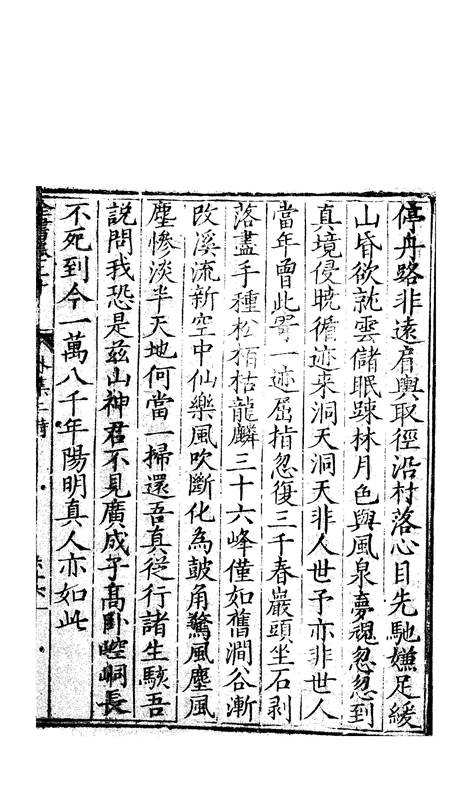 停舟路非遠肩輿取徑沿村落心目先馳嫌足緩
山昏欲就雲儲眠踈林月色與風泉夢魂忽忽到
真境侵曉循迹来洞天洞天非人世予亦非世人
當年曾此寄一迹屈指忽復三千春巖頭坐石剥
落盡手種松栢枯龍鱗三十六峰僅如舊澗谷漸
改溪流新空中仙樂風吹斷化為鼓角驚風塵風
塵慘淡半天地何當一掃還吾真從行諸生駭吾
說問我恐是兹山神君不見廣成子高卧崆峒長
不死到今一萬八千年陽明真人亦如此